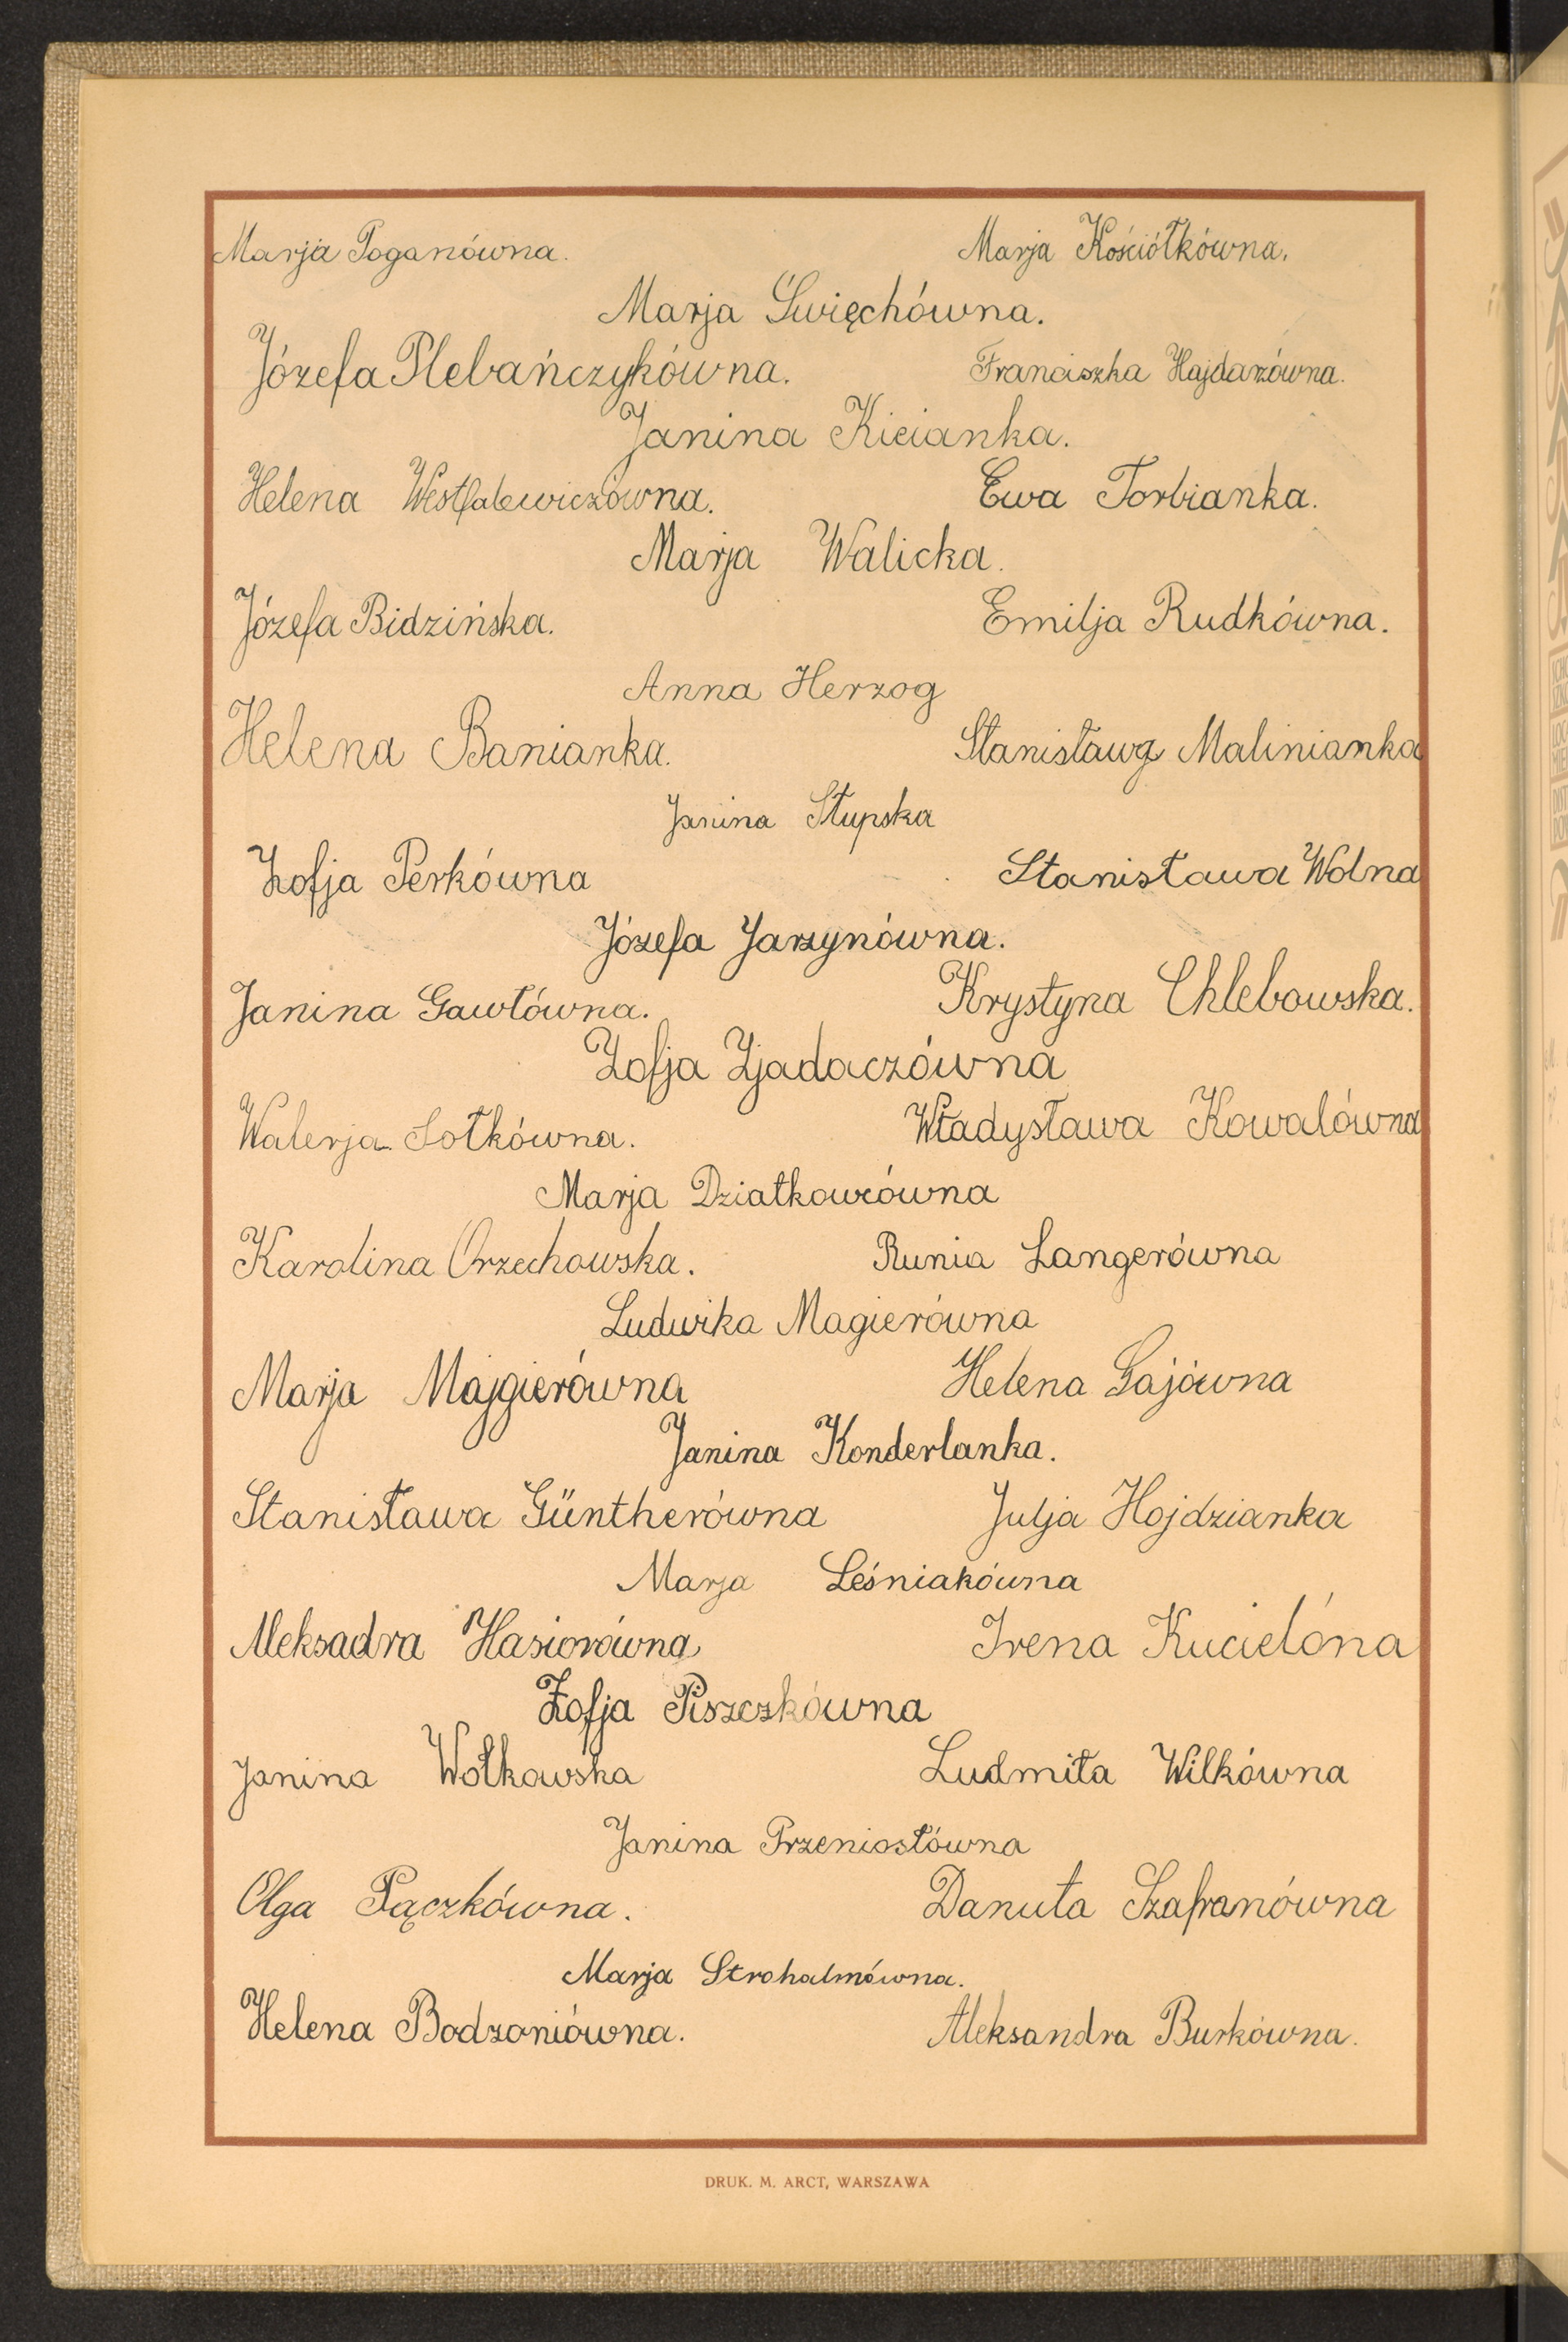 Marja Poganówna. Marja Kościółkówna.
Marja Święchówna.
Józefa Plebańczykówna. Franciszka Hajdarówna.
Janina Kicianka.
Helena Westfalewiczówna. Ewa Torbianka.
Marja Walicka.
Józefa Bidzińska. Emilja Rudkówna.
Anna Herzog
Helena Banianka. Stanisława Malinianka
Janina Słupska
Zofja Perkówna Stanisława Wolna
Józefa Jarzynówna.
Janina Gawłówna. Krystyna Chlebowska.
Zofja Zjadaczówna
Walerja Sołkówna. Władysława Kowalówna
Marja Działkowcówna
Karolina Orzechowska. Runia Langerówna
Ludwika Magierówna
Marja Majgierówna Helena Gajówna
Janina Konderlanka.
Stanisława Güntherówna Julja Hojdzianka
Marja Leśniakówna
Aleksadra Hasiorówna Irena Kucielóna
Zofja Piszczkówna
Janina Wołkowska Ludmiła Wilkówna
Janina Przeniosłówna
Olga Pączkówna. Danuta Szafranówna
Marja Strohalmówna.
Helena Bodzoniówna. Aleksandra Burkówna.
DRUK. M. ARCT, WARSZAWA